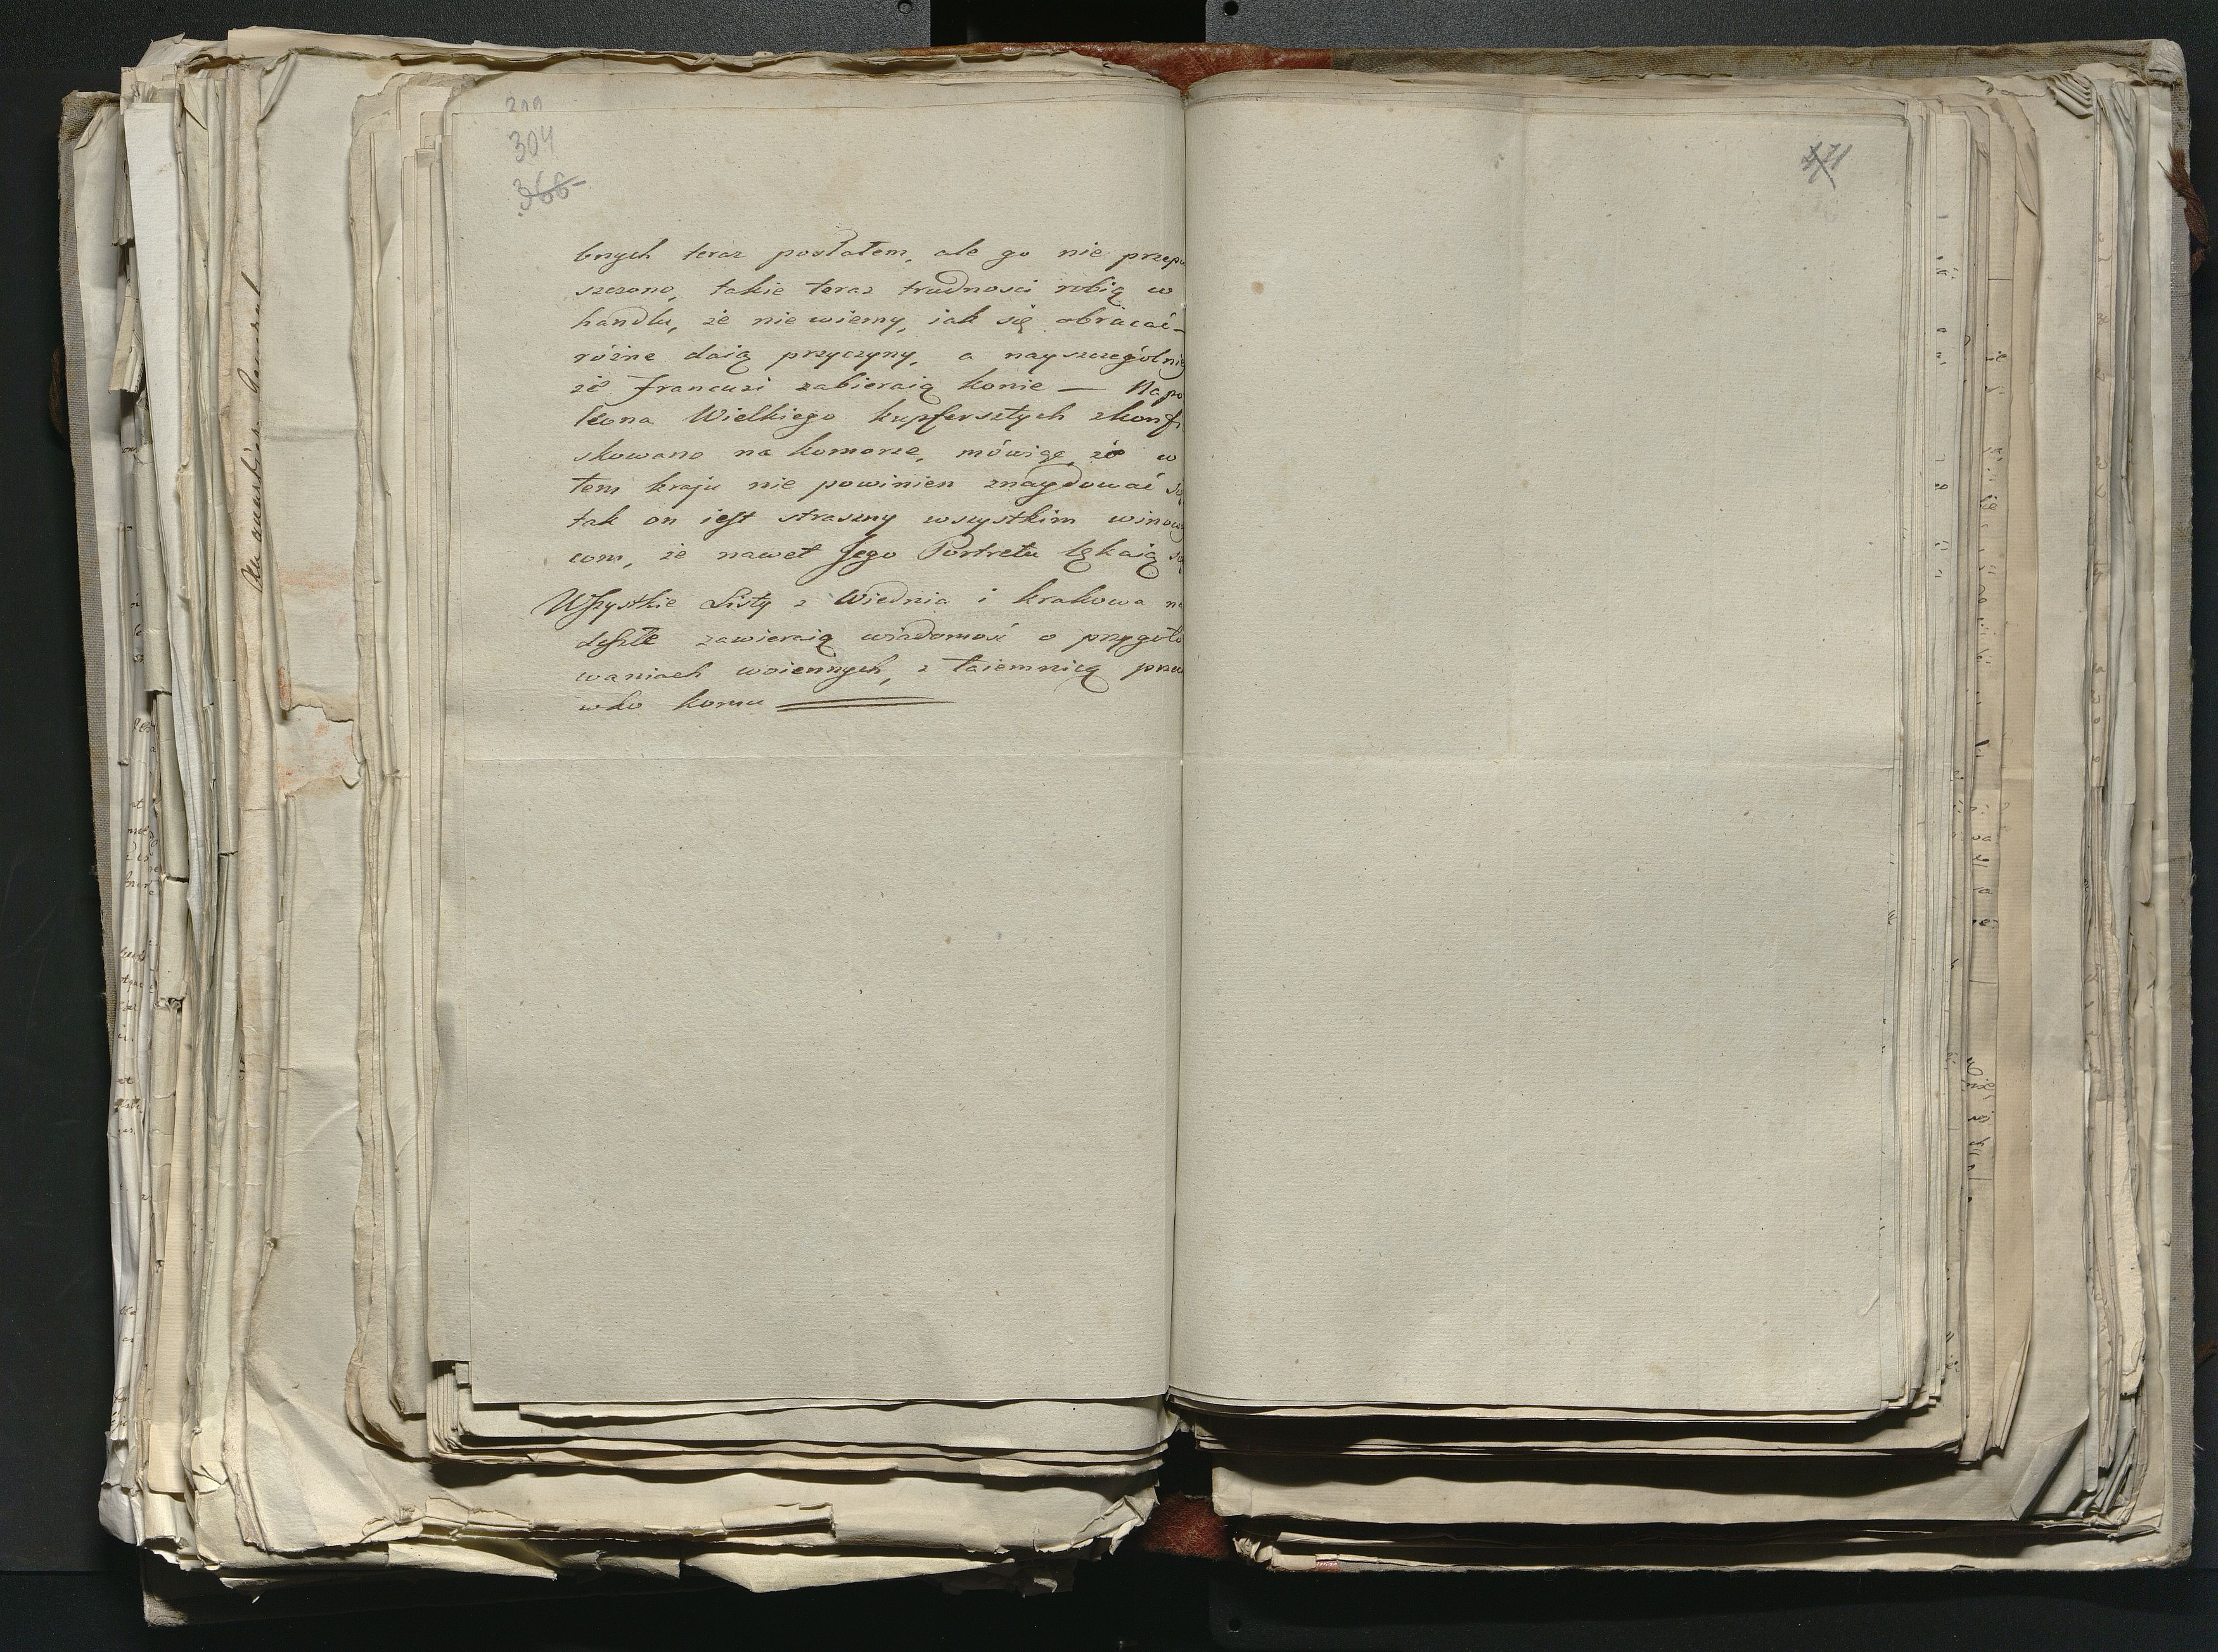 304
366
bnych teraz posłałem, ale go nie przepu
szczono, takie teraz trudnosci robią w
handlu, że nie wiemy, iak się obracać –
różne daią przyczyny, a nayszczególniey
że Francuzi zabieraią konie — Napo
leona Wielkiego kupfersztych skonfi
skowano na komorze, mówiąc, że w
tem kraju nie powinien znaydować się
tak on iest straszny wszystkim winoway
com, że nawet Jego Portretu lękaią się
Wszystkie Listy z Wiednia i Krakowa na
deszłe zawieraią wiadomość o przygoto
waniach woiennych, z taiemnicą prze
wko komu
471